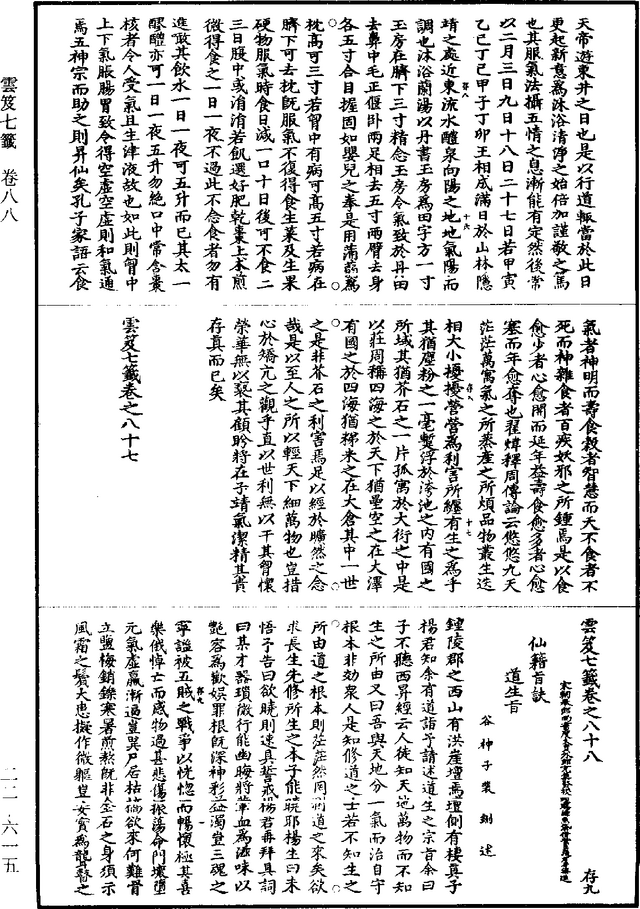 天帝遊東井之日也是以行道輒當於此日
更起新意爲沐浴清淨之始倍加謹敬之焉
也其服氣法攝五情之息漸能有定然後常
以二月三日九日十八日二十七日若甲寅
乙巳丁巳甲子丁卯王相成滿日於山林隱
靖之處近東流水醴泉向陽之地地氣陽而
調也沐浴蘭湯以丹書玉房爲田字方一寸
玉房在臍下三寸精念玉房令氣致於丹田
去鼻中毛正偃卧兩足相去五寸兩臂去身
各五寸合目握固如嬰兒之拳是用蒲蒻爲
枕高可三寸若胷中有病可高五寸若病在
臍下可去枕旣服氣不復得食生菜及生果
硬物服氣時食日減一口十日後可不食二
三日腹中或淯淯若飢選好肥乾棗上本煎
微得食之一日一夜不過此不念食者勿有
進啖其飲水一日一夜可五升而已其太一
醪醴亦可一日一夜五升勿絶口中常含棗
核者令人受氣且生津液故也如此則胷中
上下氣脹腸胃致令得空虛空虛則和氣通
焉五神宗而助之則昇仙矣孔子家語云食
氣者神明而壽食穀者智慧而夭不食者不
死而神雜食者百疾妖邪之所鍾焉是以食
愈少者心愈開而延年益壽食愈多者心愈
塞而年愈夀也翟煒釋周傳論云悠悠九天
茫茫萬寓氣之所蒸產之所煩品物叢生迭
相大小擾擾營營爲利害所纏有生之爲乎
其猶塵粉之一毫蹔浮於湾池之内有國之
所域其猶芥石之一片孤寓於大衍之中是
以莊周稱四海之於天下猶壘空之在大澤
有國之於四海猶稊米之在大倉其中一世
之是非芥石之利害焉足以經於曠然之念
哉是以至人之所以輕天下細萬物也豈措
心於矯亢之觀乎直以世利無以干其胷懷
榮華無以褻其顧眄將在子靖氣潔精其貴
存真而已矣
雲笈七籤卷之八十七
雲笈七籤卷之八十八
存九
仙籍旨訣
道生旨
谷神子裴鉶述
鍾陵郡之西山有洪崖壇焉壇側有棲真子
楊君知余有道詣予請述道生之宗旨余曰
子不聽西昇經云人徒知天地萬物而不知
生之所由又曰吾與天地分一氣而治自守
根本非効衆人是知修道之士若不知生之
所由道之根本則茫茫然罔測道之來矣欲
求長生先修所生之本子能曉耶楊生曰未
悟予告曰欲曉則速具誓戒楊君再拜具詞
曰某才器瑣微行能幽晦將葷血爲滋味以
艷容爲歡娱罪根旣深神彩益濁豈三魂之
寧謐被五賊之戰爭以恍惚而暢懷極其喜
樂俄悼亡而感物過甚悲傷振蕩命門壞墮
元氣虛羸漸逼豈異尸居枯槁欲來何難骨
立鹽梅銷鑠寒暑煎熬旣非金石之身須示
風霜之鬢大患擬作微軀豈安實爲聾瞽之
雲笈七籤 卷八八
二二 六一五